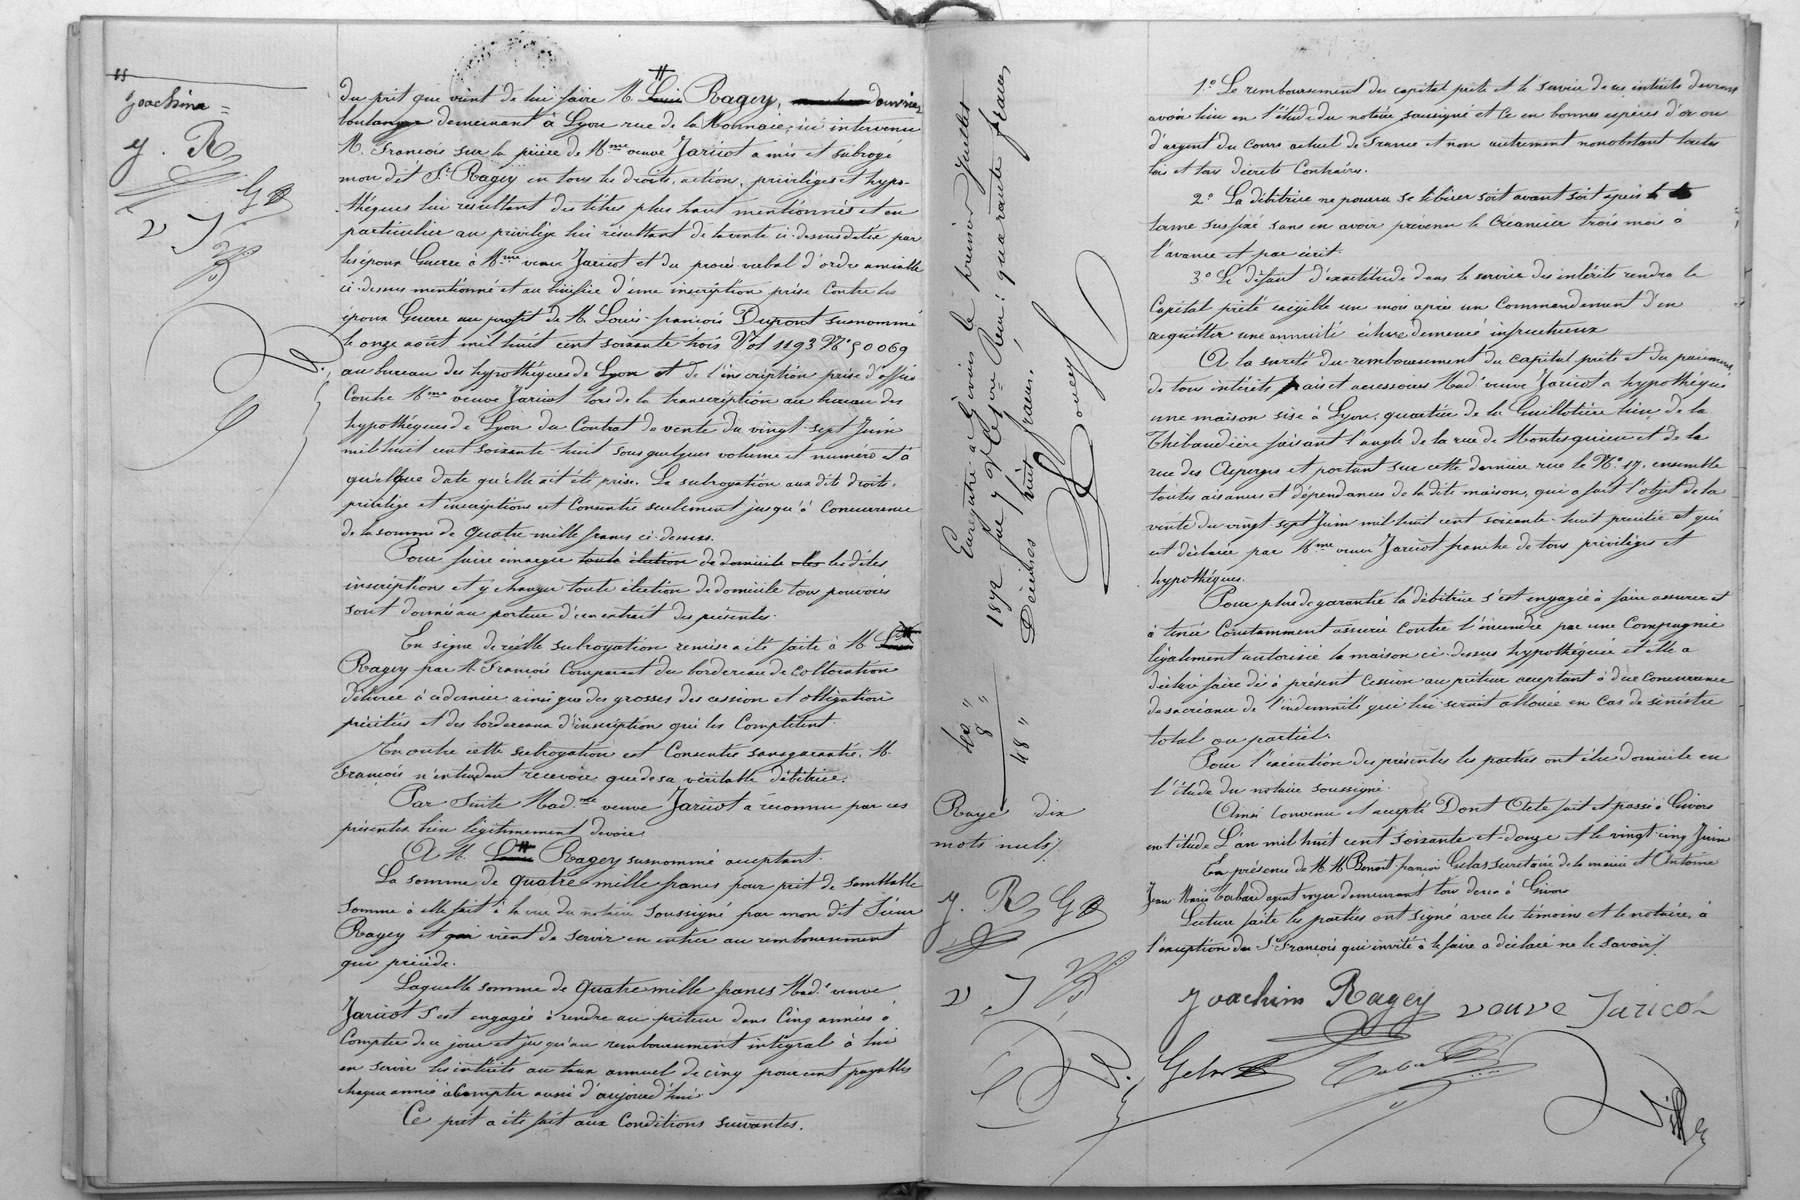 Joachim =
J. R.
G B
V J
du prêt que vient de lui faire M. Louis Ragey, ouvrier
boulanger demeurant à Lyon rue de la Monnaie, ici intervenu
M. François sur la prière de Mme veuve Jaricot a mis et subrogé
mon dit Sr Ragey en tous les droits, actions, privilèges et hypo-
thèques lui résultant des titres plus haut mentionnés et en
particulier au privilège lui résultant de la vente ci-dessus datée par
les époux Guerre à Mme veuve Jaricot et du procès-verbal d'ordre amiable
ci-dessus mentionné et au bénéfice d'une inscription prise contre les
époux Guerre au profit de M. Louis-françois Dupont susnommé
le onze août mil huit cent soixante trois Vol 1193 No 50069
au bureau des hypothèques de Lyon et de l'inscription prise d'office
Contre Mme veuve Jaricot lors de la transcription au bureau des
hypothèques de Lyon du Contrat de vente du vingt-sept Juin
mil huit cent soixante-huit sous quelques volume et numéro et à
quelque date qu'elle ait été prise. La subrogation aux dits droits,
privilège et inscriptions est Consentie seulement jusqu'à Concurrence
de la somme de quatre mille francs ci-dessus.
Pour faire émarger toute élection de domicile les dites
inscriptions et y changer toute élection de domicile tous pouvoirs
sont donnés au porteur d'un extrait des présentes.
En signe de réelle subrogation remise a été faite à M. Louis
Ragey par M. François Comparant du bordereau de collocation
délivré à ce dernier ainsi que des grosses des cession et obligation
précitées et des bordereaux d'inscription qui les Complètent.
En outre cette subrogation est Consentie sans garantie, M.
François n'entendant recevoir que de sa véritable débitrice.
Par Suite Madme veuve Jaricot a reconnu par ces
présentes bien légitimement devoir
A M. Louis Ragey susnommé acceptant.
La somme de quatre mille francs pour prêt de semblable
somme à elle fait à la vue du notaire soussigné par mon dit Sieur
Ragey et qui vient de servir en entier au remboursement
qui précède.
Laquelle somme de quatre mille francs Made veuve
Jaricot s'est engagée à rendre au prêteur dans Cinq années à
Compter de ce jour et jusqu'au remboursement intégral à lui
en servir les intérêts au taux annuel de cinq pour cent payables
chaque année à compter aussi d'aujourd'hui
Ce prêt a été fait aux Conditions suivantes.
Enregistré à Givors le premier Juillet
1872 fo 7 Vo Cases Reçu: quarante francs
Décimes huit francs.
40 "
8 "
48 "
Rayé dix
mots nuls
J. R. G B
V. J
1.° Le remboursement du capital prêté et le service de ses intérêts devront
avoir lieu en l'étude du notaire soussigné et Ce en bonnes espèces d'or ou
d'argent du Cours actuel de France et non autrement nonobstant toutes
lois et tous décrets Contraires.
2.° La débitrice ne pourra se libérer soit avant soit après le
terme sus fixé sans en avoir prévenu le Créancier trois mois à
l'avance et par écrit.
3.° Le défaut d'exactitude dans le service des intérêts rendra le
Capital prêté exigible un mois après un Commandement d'en
acquitter une annuité être demeuré infructueux
A la sureté du remboursement du capital prêté et du paiement
de tous intérêts frais et accessoires Made veuve Jaricot a hypothéqué
une maison sise à Lyon, quartier de la Guillotière lieu de la
Thibaudière faisant l'angle de la rue de Montesquieu et de la
rue des Asperges et portant sur cette dernière rue le No 17. ensemble
toutes aisances et dépendances de la dite maison, qui a fait l'objet de la
vente du vingt-sept Juin mil huit cent soixante-huit précitée et qui
est déclarée par Mme veuve Jaricot franche de tous privilèges et
hypothèques.
Pour plus de garantie la débitrice s'est engagée à faire assurer et
à tenir Constamment assurée Contre l'incendie par une Compagnie
légalement autorisée la maison ci-dessus hypothéquée et elle a
déclaré faire dès à présent Cession au prêteur acceptant à due Concurrence
de sa créance de l'indemnité qui lui serait allouée en Cas de sinistre
total ou partiel.
Pour l'exécution des présentes les parties ont élu domicile en
l'étude du notaire soussigné.
Ainsi Convenu et accepté Dont Acte fait et passé à Givors
en l'étude L'an mil huit cent soixante-et-douze et le vingt-cinq Juin
En présence de M. M. Benoit-françois Gelas secrétaire de la mairie et Antoine
Jean Marie agent voyer demeurant tous deux à Givors
Lecture faite les parties ont signé avec les témoins et le notaire, à
l'exception du Sr François qui invité à le faire a déclaré ne le savoir
Joachim Ragey veuve Jaricot
Gelas